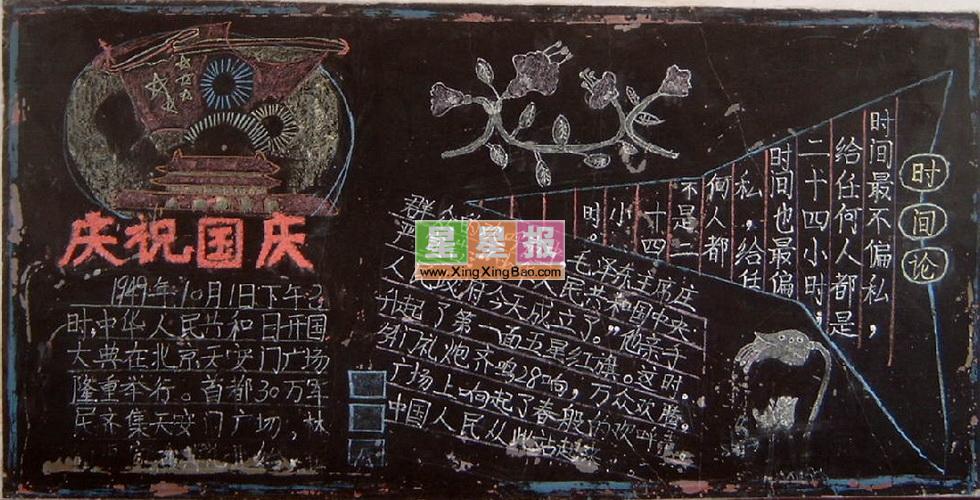 庆祝国庆
1949年10月1日下午3
时,中华人民共和日开国
大典在北京天安门广场
隆重举行。首都30万军
民齐集天安门广场,林
毛泽东主席庄
人民共和国中央
人民政府今天成立了”他亲手
升起了第一面五星红旗。这时。
54门礼炮齐鸣28响,万众欢腾。
广场上响起了春般的欢呼。
中国人民从此站起
星星报
www.XingXingBao.com
时间论
时间最不偏私,
给任何人都是
二十四小时
时间也最偏
私,给任
何人都
不是二
十四
小
时。